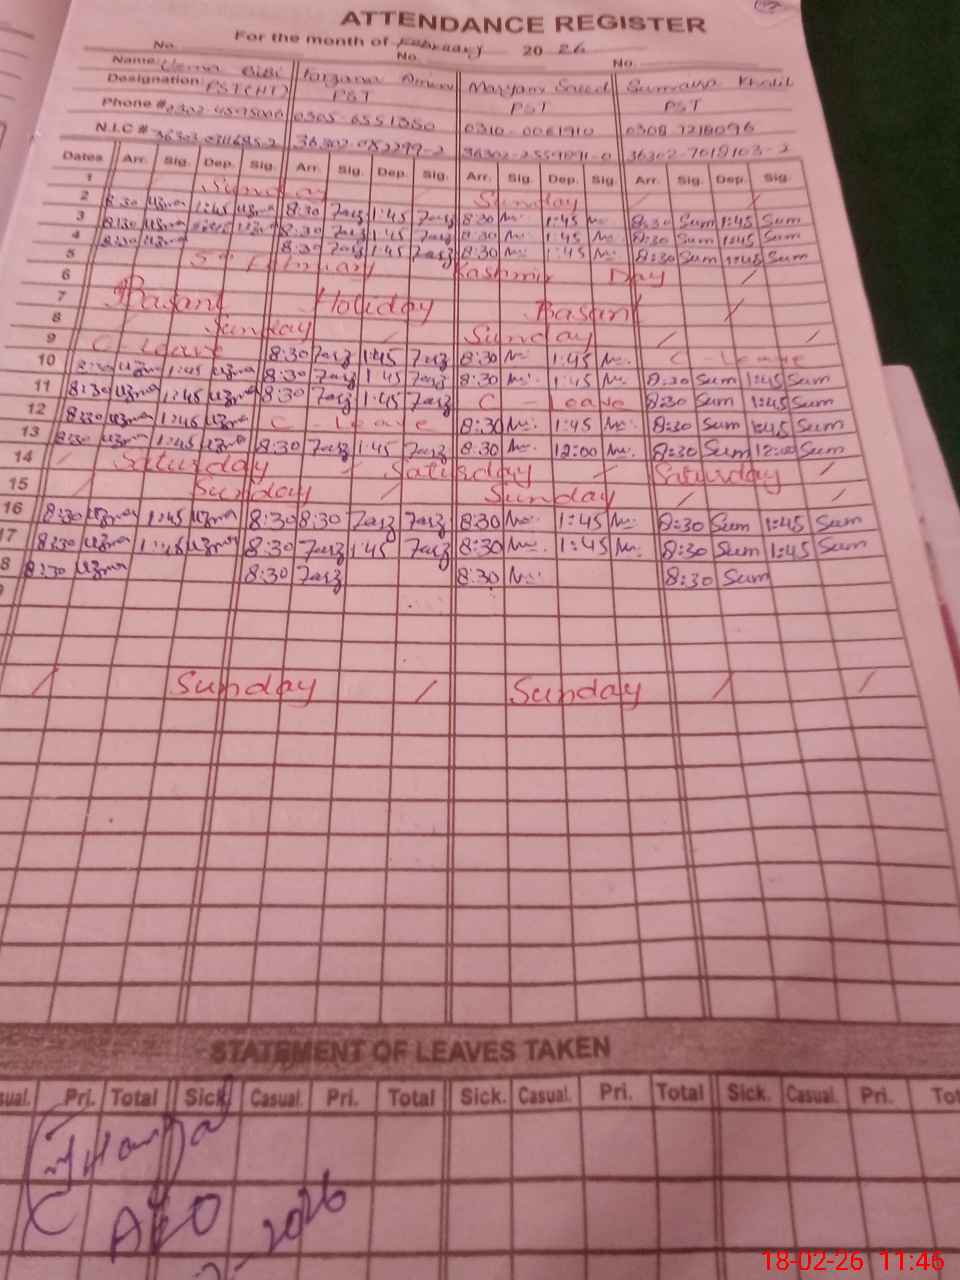 ATTENDANCE REGISTER
For the month of February 20 26
No. No. No.
Name Uzma Bibi Farzana Maryam Saeed Sumaya Khalil
Designation PST(HT) PST PST PST
Phone # 0305-6551350 0310-0061910 0308 7218096
N.I.C #
Dates Arr. Sig. Dep. Sig. Arr. Sig. Dep. Sig. Arr. Sig. Dep. Sig. Arr. Sig. Dep. Sig.
1 Sunday Sunday
2 8:30 Uzma 1:45 Uzma 8:30 Farz 1:45 Farz 8:30 1:45 8:30 Sum 1:45 Sum
3 8:30 Uzma Uzma 8:30 Farz 1:45 Farz 8:30 1:45 8:30 Sum 1:45 Sum
4 8:30 Uzma 8:30 Farz 1:45 Farz 8:30 1:45 8:30 Sum 1:45 Sum
5 Kashmir Day
6 Basant Holiday Basant
7
8 Sunday Sunday
9 C - Leave 8:30 Farz 1:45 Farz 8:30 1:45 C - Leave
10 8:30 Uzma 1:45 Uzma 8:30 Farz 1:45 Farz 8:30 1:45 8:30 Sum 1:45 Sum
11 8:30 Uzma 1:45 Uzma 8:30 Farz 1:45 Farz C - Leave 8:30 Sum 1:45 Sum
12 8:30 Uzma 1:45 Uzma C - Leave 8:30 1:45 8:30 Sum 1:45 Sum
13 8:30 Uzma 1:45 Uzma 8:30 Farz 1:45 Farz 8:30 12:00 8:30 Sum 12:00 Sum
14 Saturday Saturday Saturday
15 Sunday Sunday
16 8:30 Uzma 1:45 Uzma 8:30 8:30 Farz Farz 8:30 1:45 8:30 Sum 1:45 Sum
17 8:30 Uzma 1:45 Uzma 8:30 Farz 1:45 Farz 8:30 1:45 8:30 Sum 1:45 Sum
8 8:30 Uzma 8:30 Farz 8:30 8:30 Sum
Sunday Sunday
STATEMENT OF LEAVES TAKEN
sual. Pri. Total Sick. Casual. Pri. Total Sick. Casual. Pri. Total Sick. Casual. Pri. Tot
AEO
2026
18-02-26 11:46